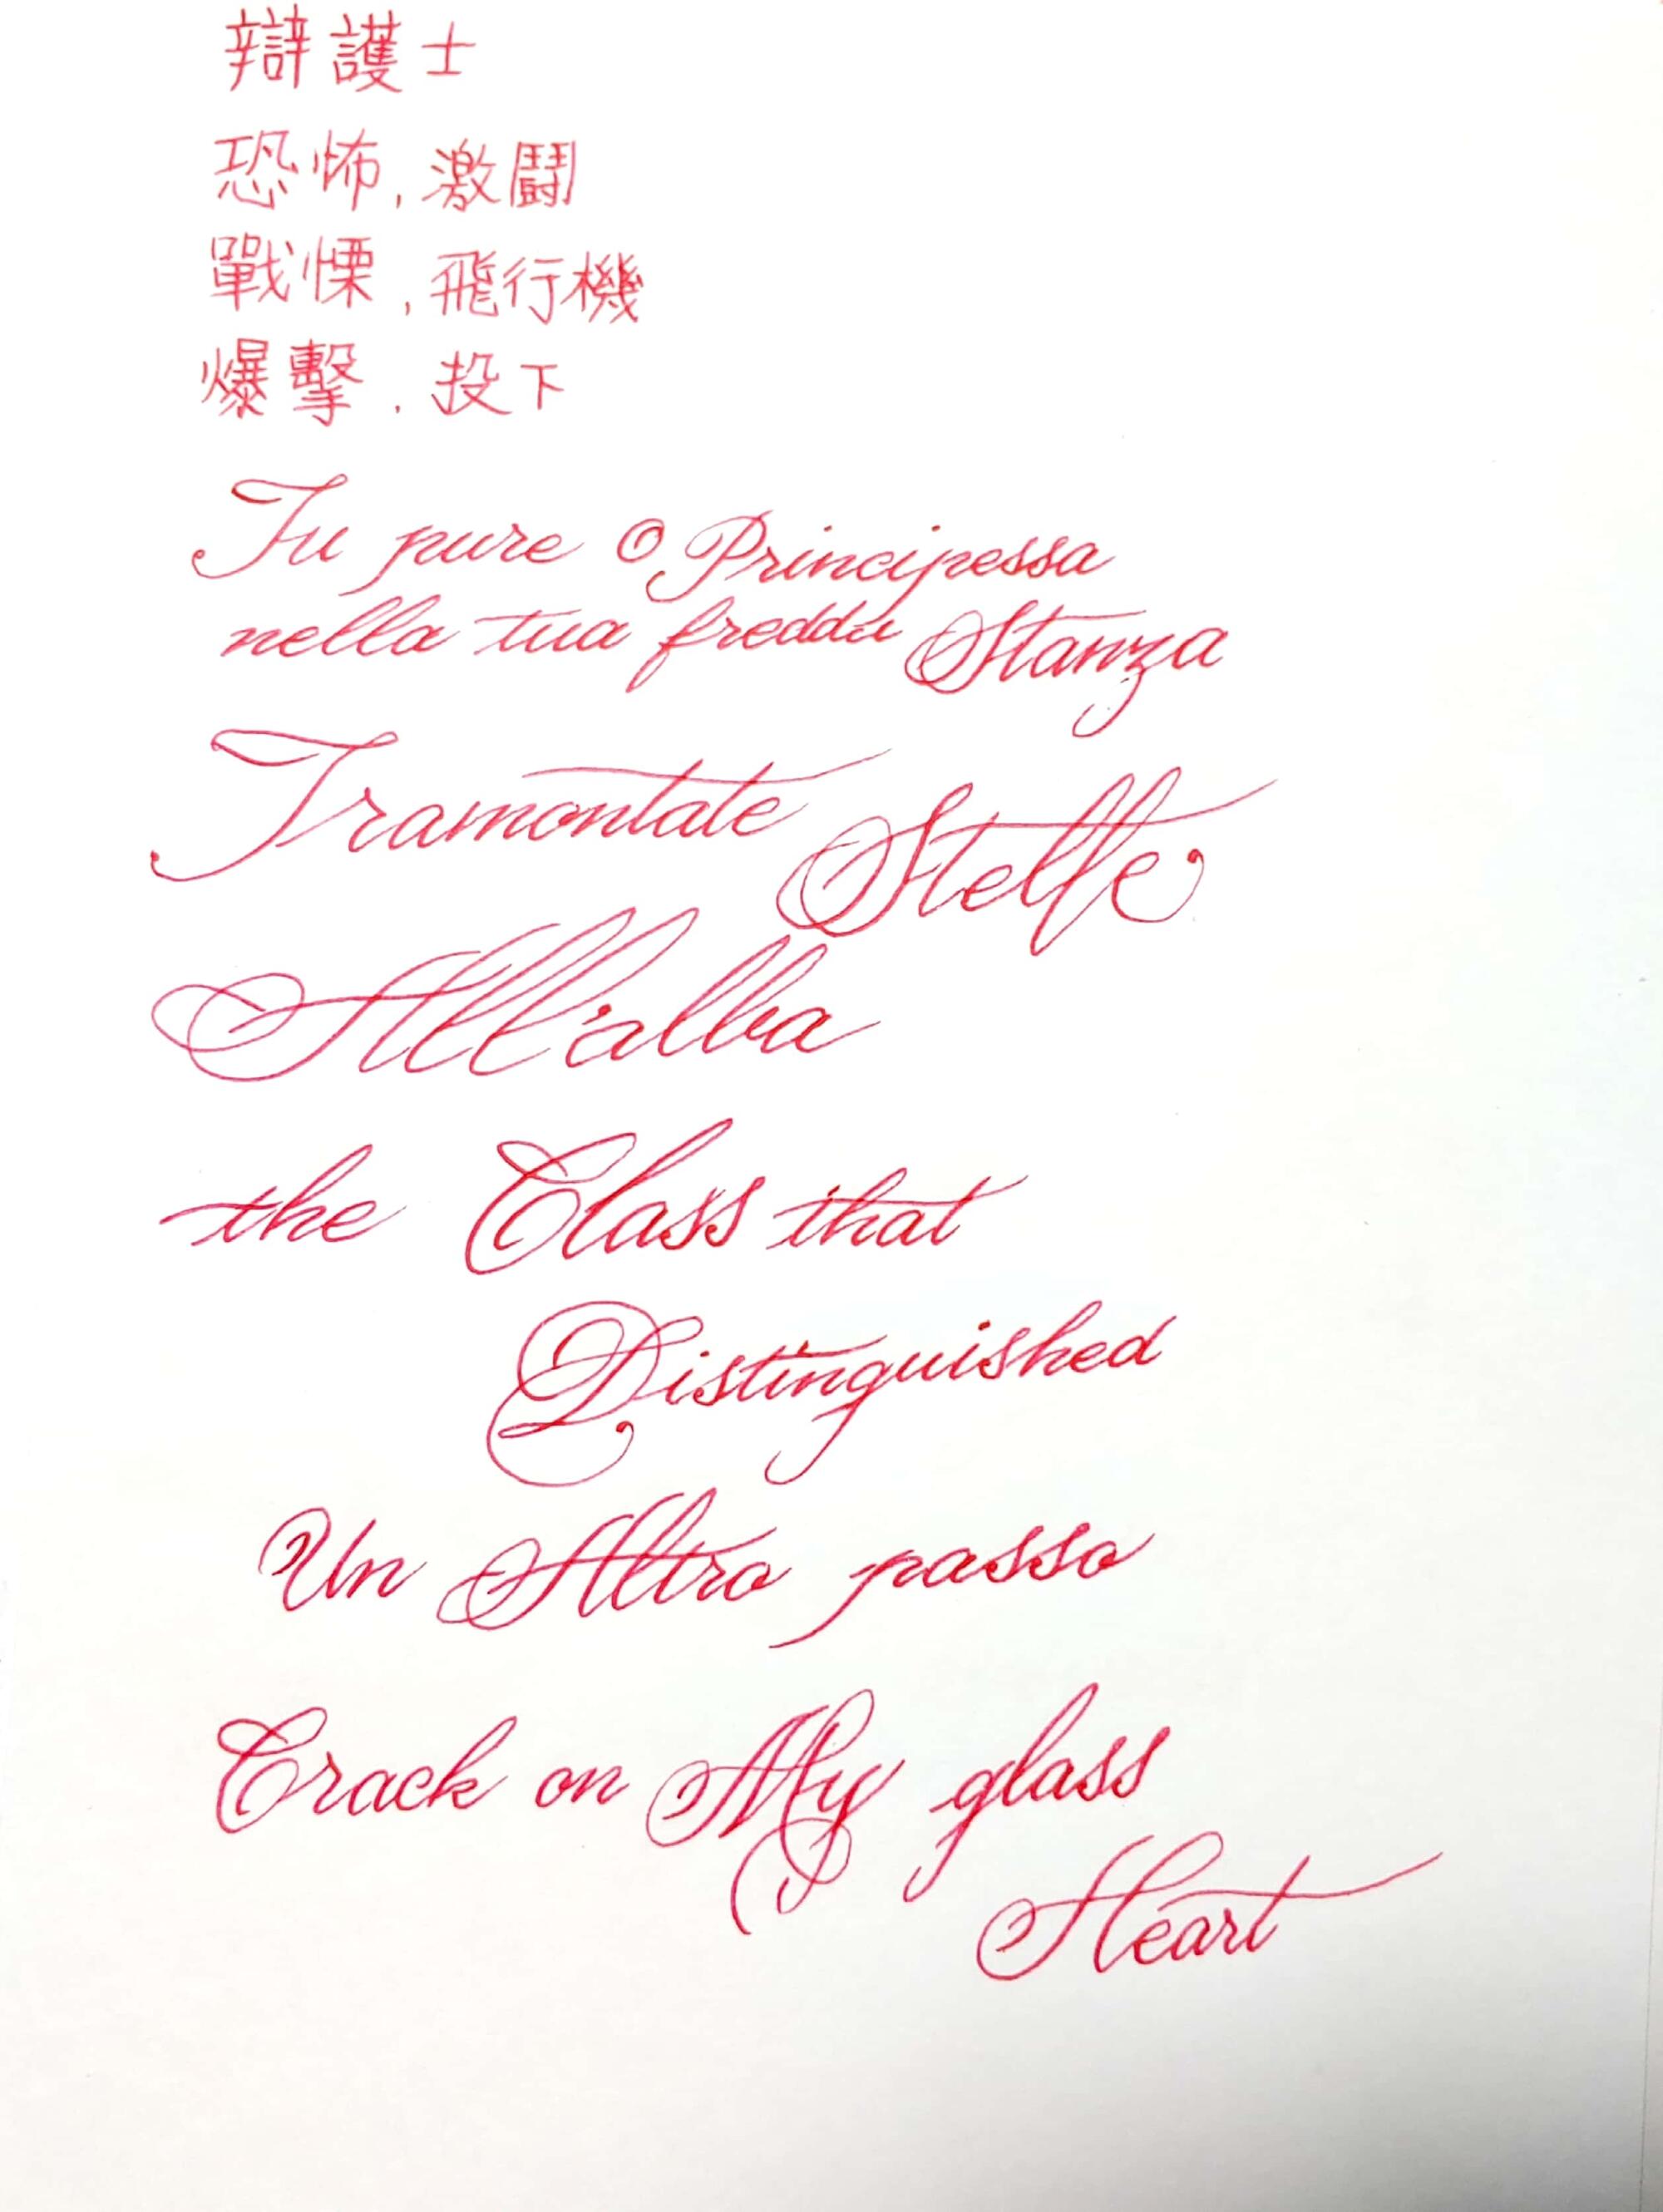 辯護士
恐怖, 激鬪
戰慄, 飛行機
爆擊, 投下
Tu pure o Principessa
nella tua fredda Stanza
Tramontate Stelle
All'alba
the Class that
Distinguished
Un Altro passo
Crack on My glass
Heart